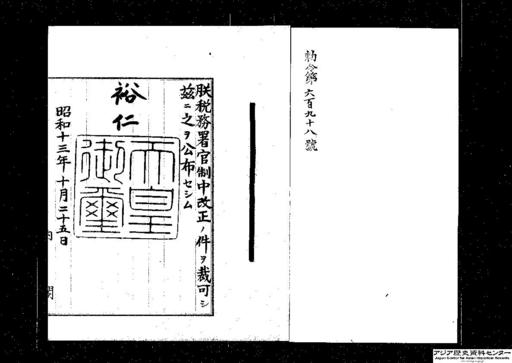 勅令第六百九十八號
朕税務署官制中改正ノ件ヲ裁可シ
茲ニ之ヲ公布セシム
裕仁
天皇
御璽
昭和十三年十月二十五日
内閣
アジア歴史資料センター
Japan Center for Asian Historical Records